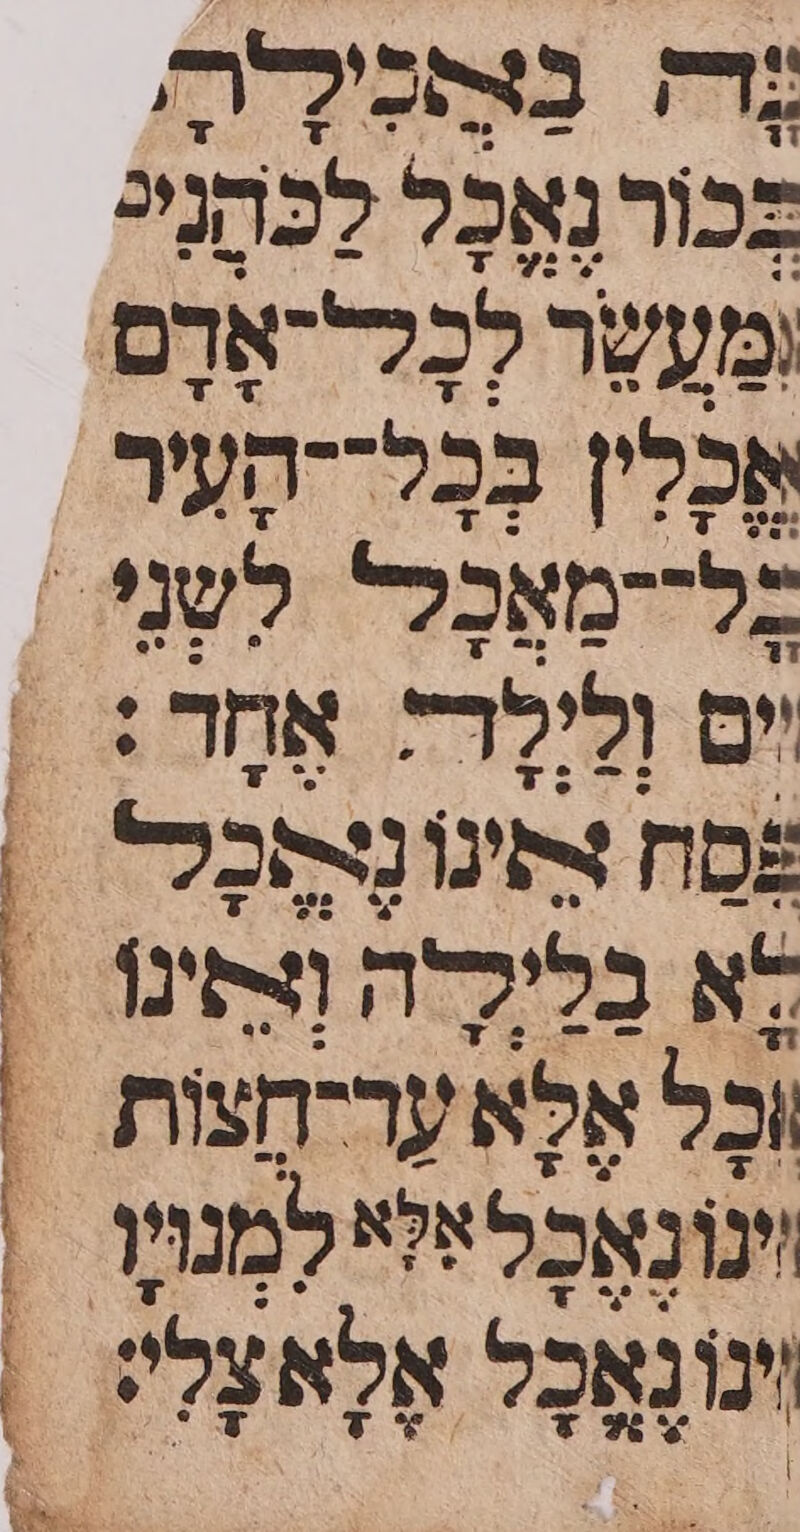 בַאֲכִילָתָ
בְּכוֹר נֶאֱכָל לַכֹּהֲנִים
מַּעֲשֵׂר לְכָל־אָדָם
אֱכָלִין בְּכָל־־הָעִיר
כָל־־מַאֲכָל לִשְׁנֵי
וְלַיְלָה אֶחָד :
פֶּסַח אֵינוֹ נֶאֱכָל
בַלַיְלָה וְאֵינוֹ
אֶלָּא עַד־חֲצוֹת
נֶאֱכָל אִלָּא לִמְנוּיָו
נֶאֱכָל אֶלָא צָלִי: